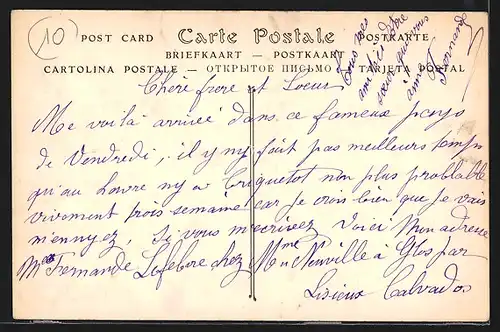 10
POST CARD Carte Postale POSTKARTE
BRIEFKAART — POSTKAART
CARTOLINA POSTALE — ОТКРЫТОЕ ПИСЬМО — TARJETA POSTAL
Chere frere et Soeur
Me voilà arrivée dans ce fameux pays
de Vendredi, il y ny fait pas meilleurs temps
qu'au Havre ny a Criquetot non plus
vivement trois semaine car je crois bien que je vais
m'ennyez, Si vous m'ecrivez Voici Mon adresse
Fernande Lefebvre chez Mme Neuville à Glos par
Lisieux Calvados
Fernande